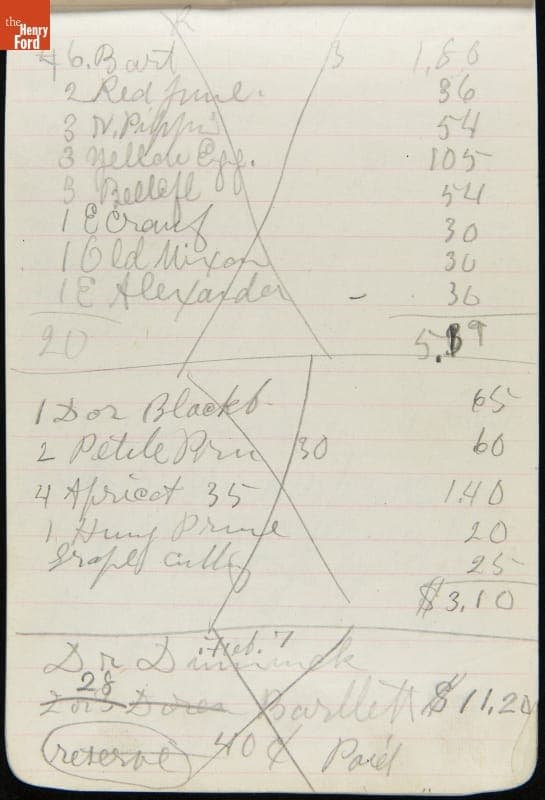 the
Henry
Ford
6. Bart 1,80
2 Red June. 36
3 N. Pippin 54
3 Yellow Egg. 105
3 Bellefl 54
1 E Crawf 30
1 Old Mixon 30
1 E Alexander - 30
20 5.19
1 Doz Blackb 65
2 Petite Prn 30 60
4 Apricot 35 1.40
1 Hung Prune 20
Grape cuttg 25
$3.10
Feb. 7
Dr Dimmick
28
Bartlett $11.20
reserve 40¢ Paid